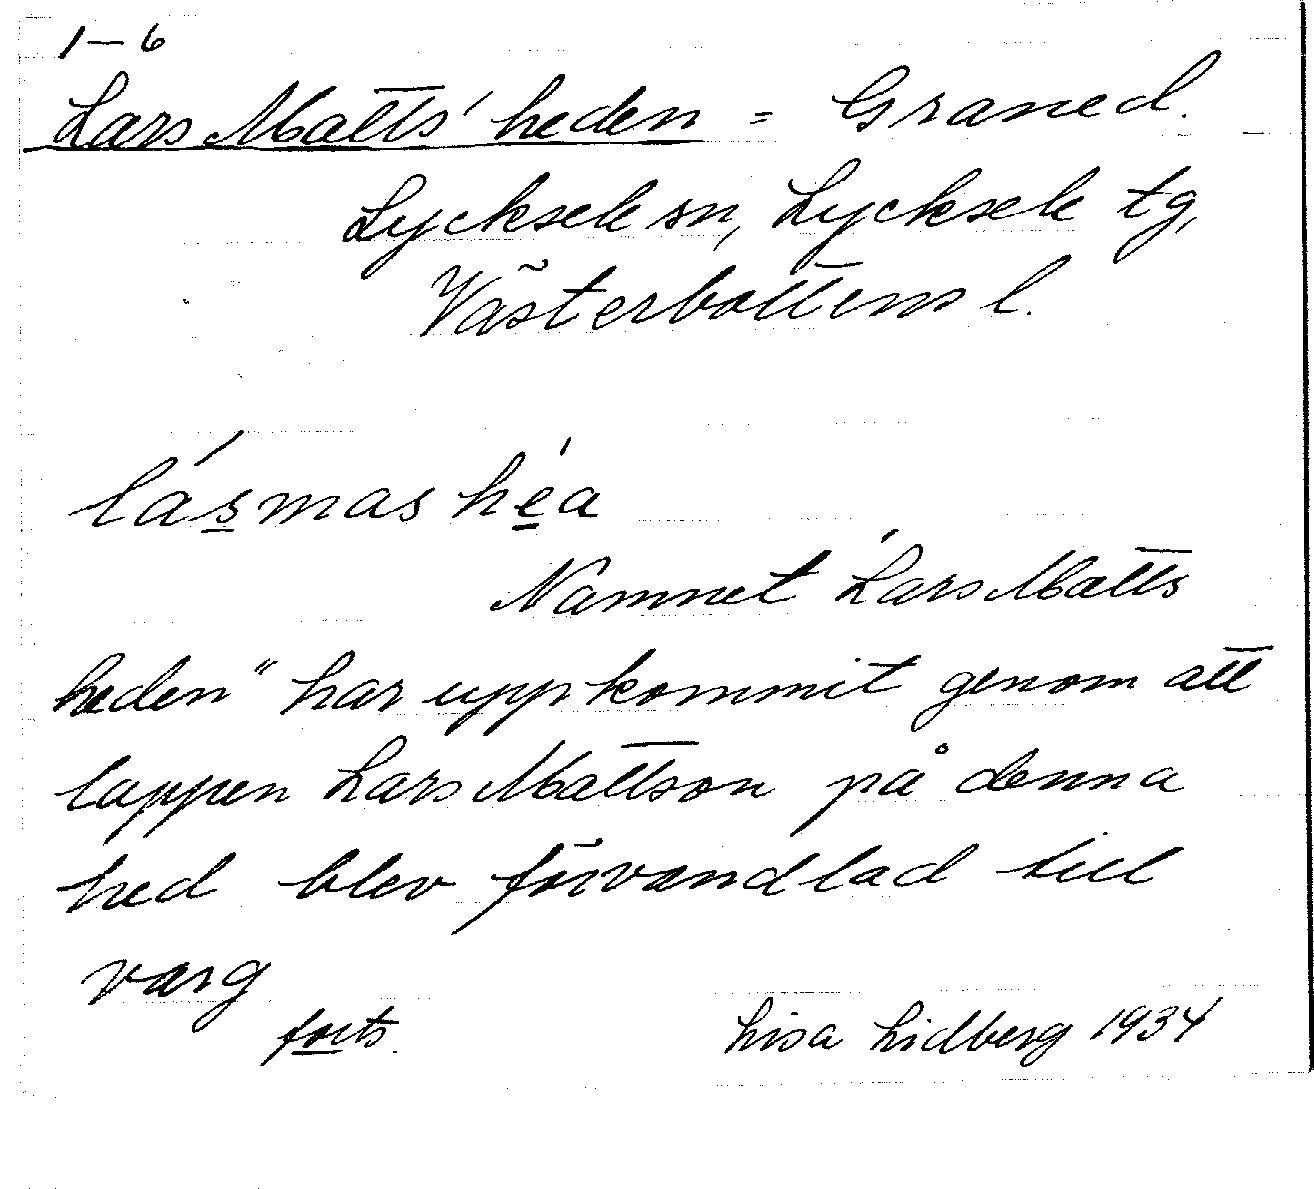 1–6
Lars Matts' heden = Graned.
Lycksele sn, Lycksele tg,
Västerbottens l.
lásmas héa
Namnet "Lars Matts
heden" har uppkommit genom att
lappen Lars Mattson på denna
hed blev förvandlad till
varg
forts.
Lisa Lidberg 1934